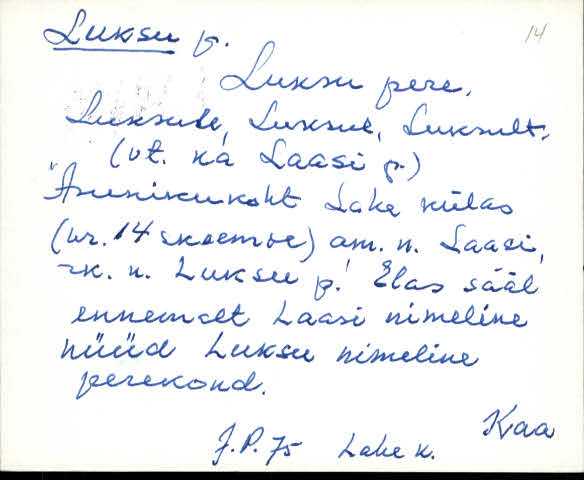 Luksu p.
14
Luksu pere,
Luksule, Luksul, Luksult.
(vt. ka Laasi p.)
"Asunikukoht Lahe külas
(nr. 14 skeemoe) am. n. Laasi,
rk. n. Luksu p.! Elas sääl
ennemalt Laasi nimeline
nüüd Luksu nimeline
perekond.
Kaa
J.P. 75 Lahe k.